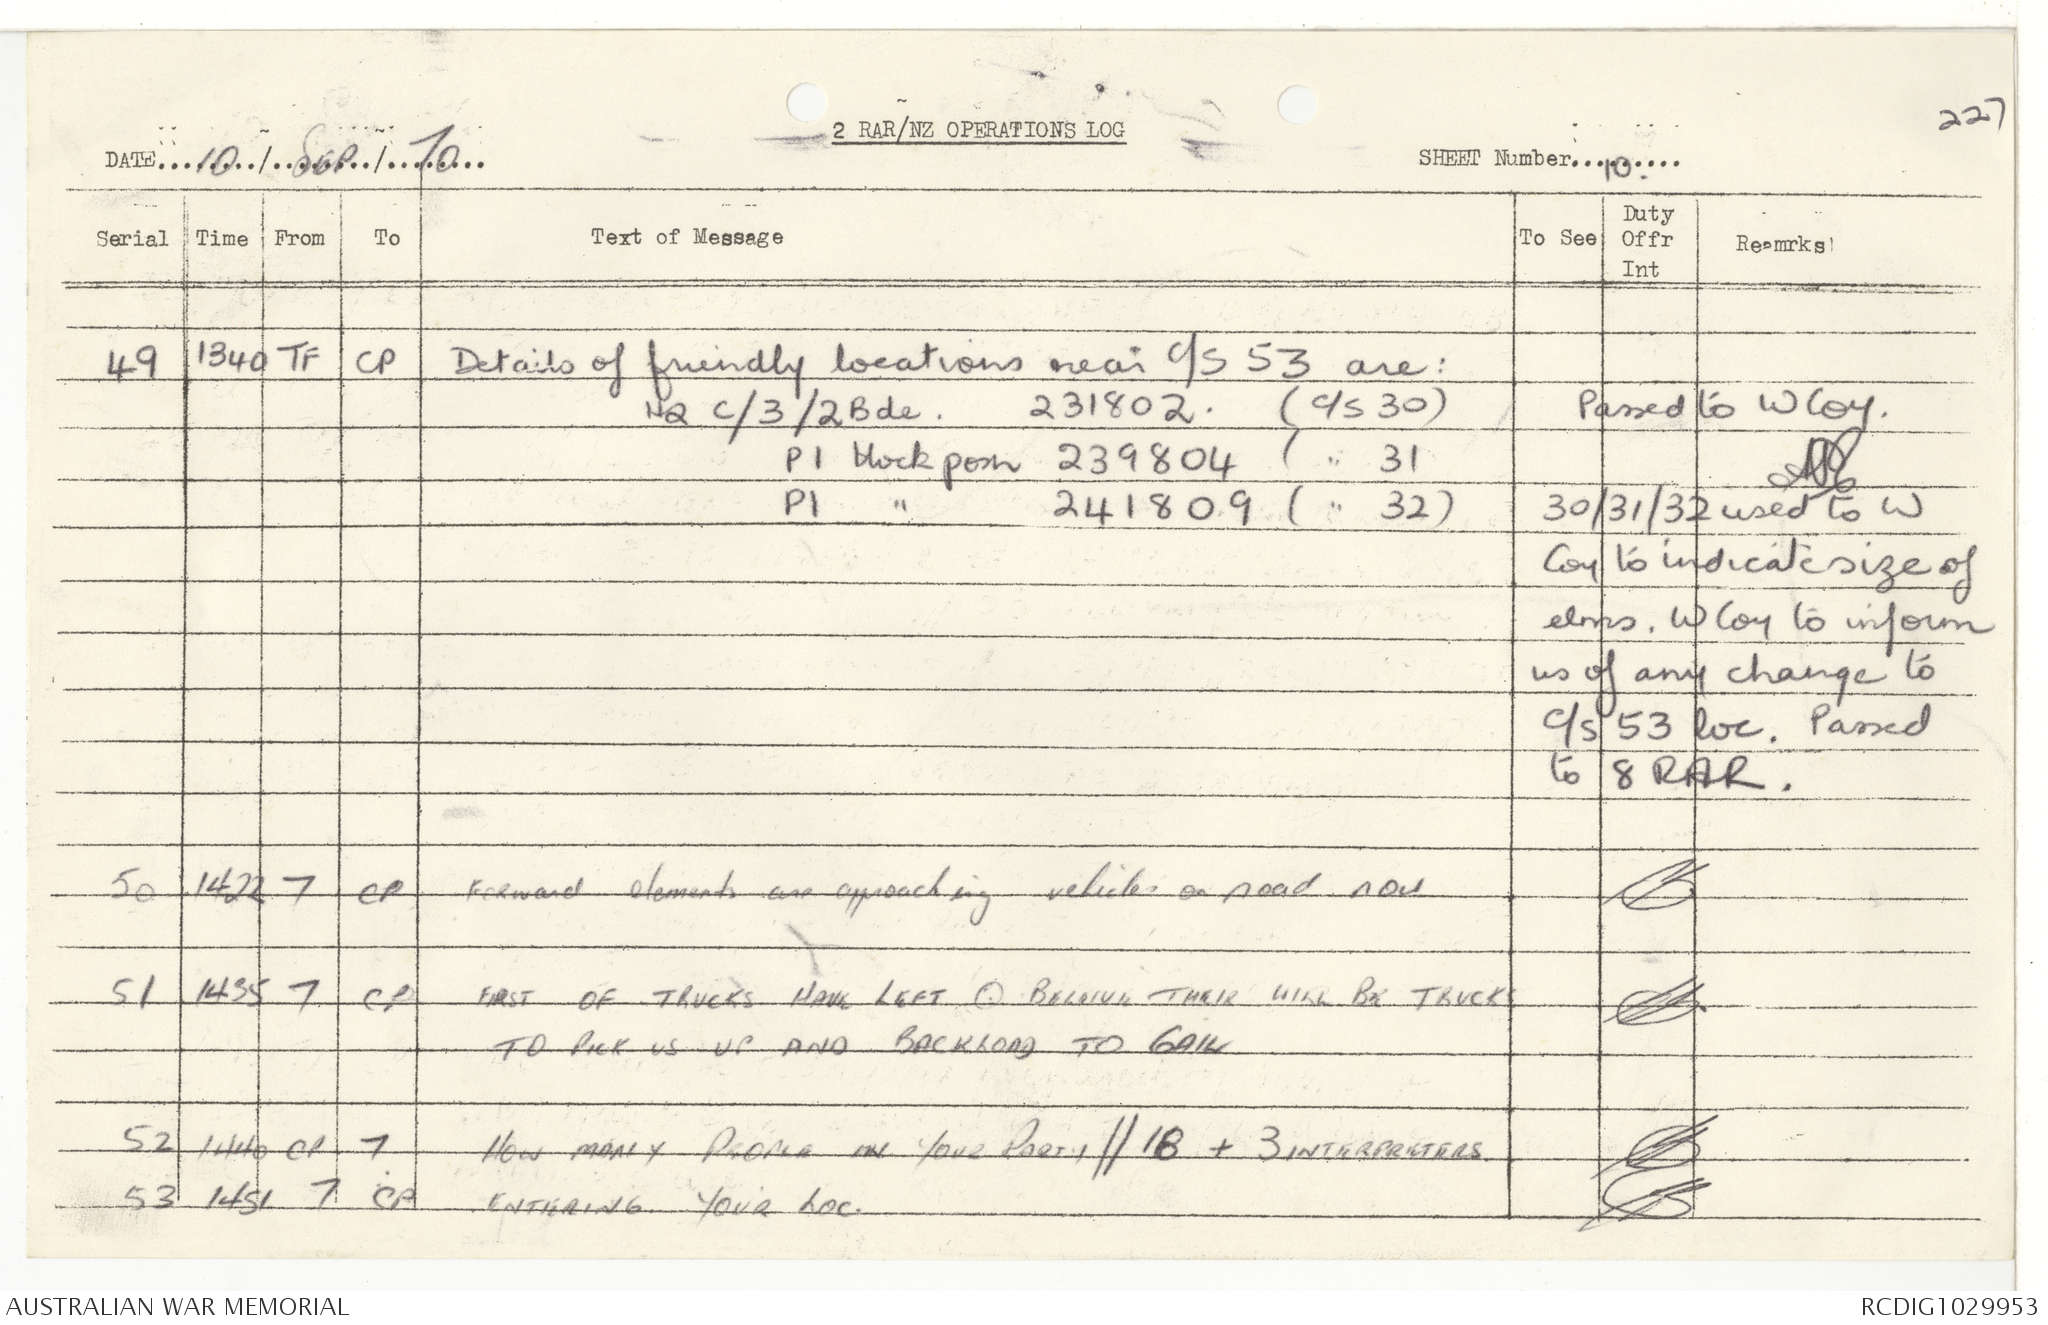 227
2 RAR/NZ OPERATIONS LOG
DATE...10../..SEP../..70...
SHEET Number...10.....
Serial Time From To Text of Message To See Duty Offr Int Reamrks
49 1340 TF CP Details of friendly locations near C/S 53 are:
HQ C/3/2 Bde. 231802. (C/S 30) Passed to W Coy.
Pl block posn 239804 ( " 31
Pl " 241809 ( " 32) 30/31/32 used to W
Coy to indicate size of
elms. W Coy to inform
us of any change to
C/S 53 loc. Passed
to 8 RAR.
50 1422 7 CP Forward elements are approaching vehicles on road now
51 1435 7 CP FIRST OF TRUCKS HAVE LEFT BELIEVE THEIR WILL BE TRUCKS
TO PICK US UP AND BACKLOAD TO GAIL
52 1440 CP 7 HOW MANY PEOPLE IN YOUR PARTY // 18 + 3 INTERPRETERS
53 1451 7 CP ENTERING YOUR LOC.
AUSTRALIAN WAR MEMORIAL
RCDIG1029953